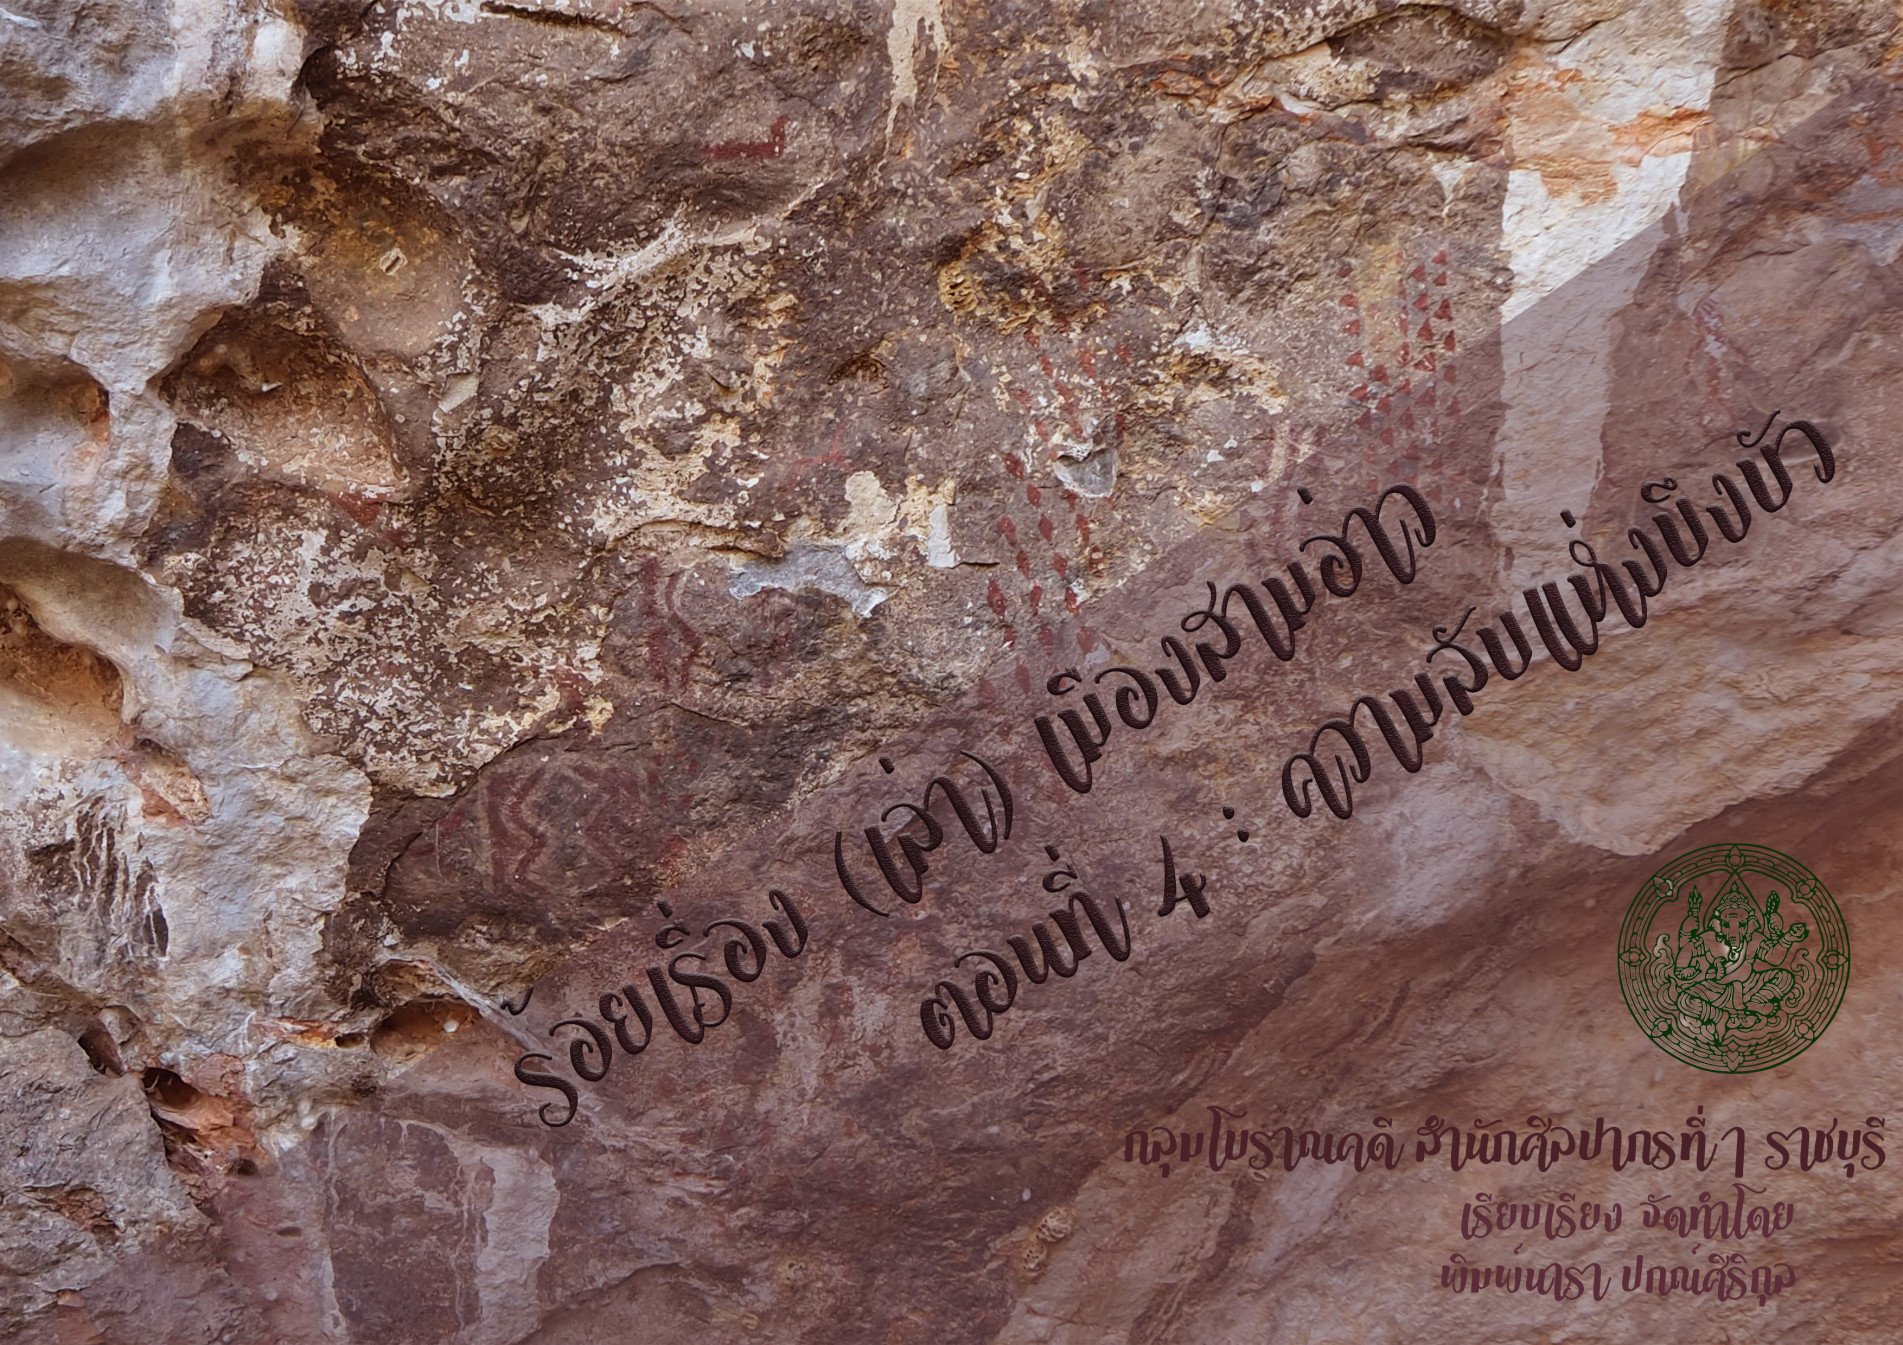 ร้อยเรื่อง (เล่า) เมืองสามอ่าว
ตอนที่ 4 : ความลับแห่งบึงบัว
กลุ่มโบราณคดี สำนักศิลปากรที่ ๑ ราชบุรี
เรียบเรียง จัดทำโดย
พิมพ์นารา ปกณ์ศิริกุล